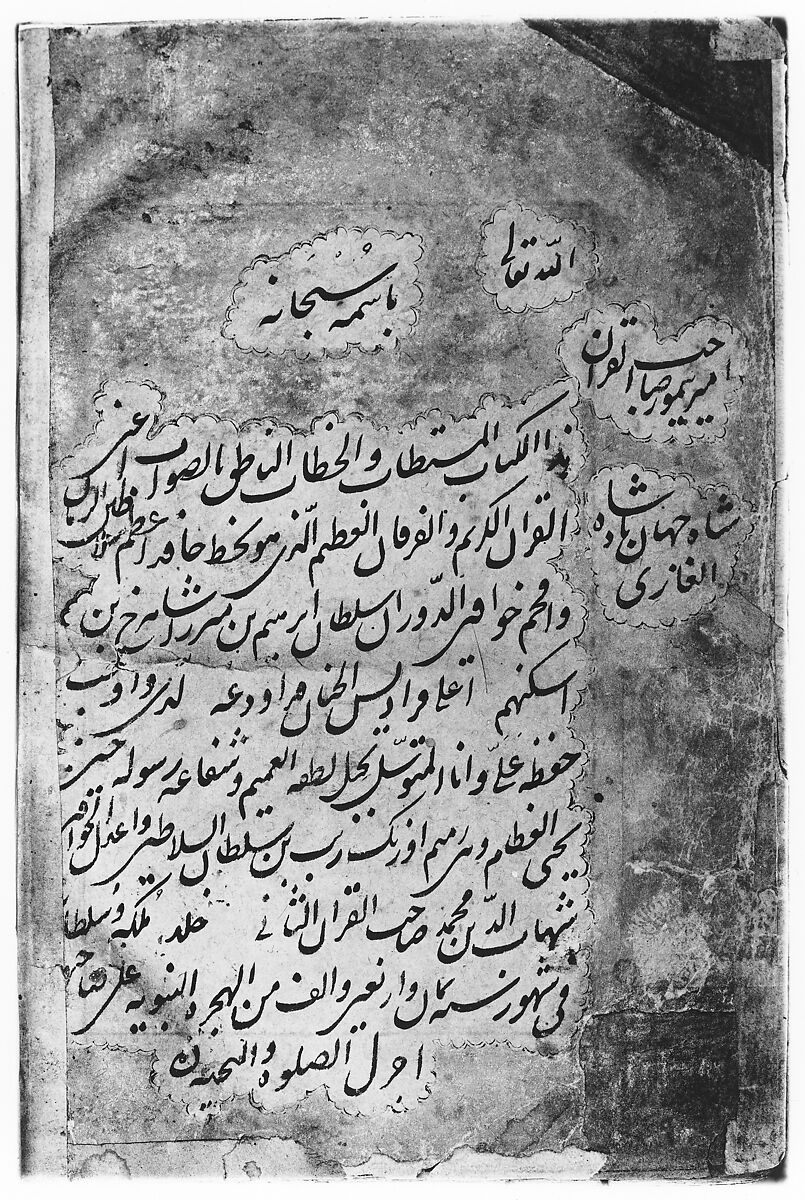 الله تعالى
باسمه سبحانه
امير تيمور صاحب القران
شاه جهان بادشاه
الغازى
هذا الكتاب المستطاب والخطاب الناطق بالصواب اعنى
القران الكريم والفرقان العظيم الذى هو بخط خاقد اعظم سلاطين الزمان
وافخم خواقين الدوران سلطان ابرهيم بن ميرزا شاهرخ بن
اسكنهم اعلى فراديس الجنان قد اودعه لدى واوجب
حفظه علىّ وانا المتوسّل بحبل لطفه العميم وشفاعة رسوله حين
يحيى العظام وهى رميم اورنك زيب بن سلطان السلاطين واعدل الخواقين
شهاب الدّين محمد صاحب القران الثانى خلد ملكه وسلطانه
فى شهور سنه ثمان واربعين والف من الهجره النبويه على صاحبها
اجزل الصلوة والتحية